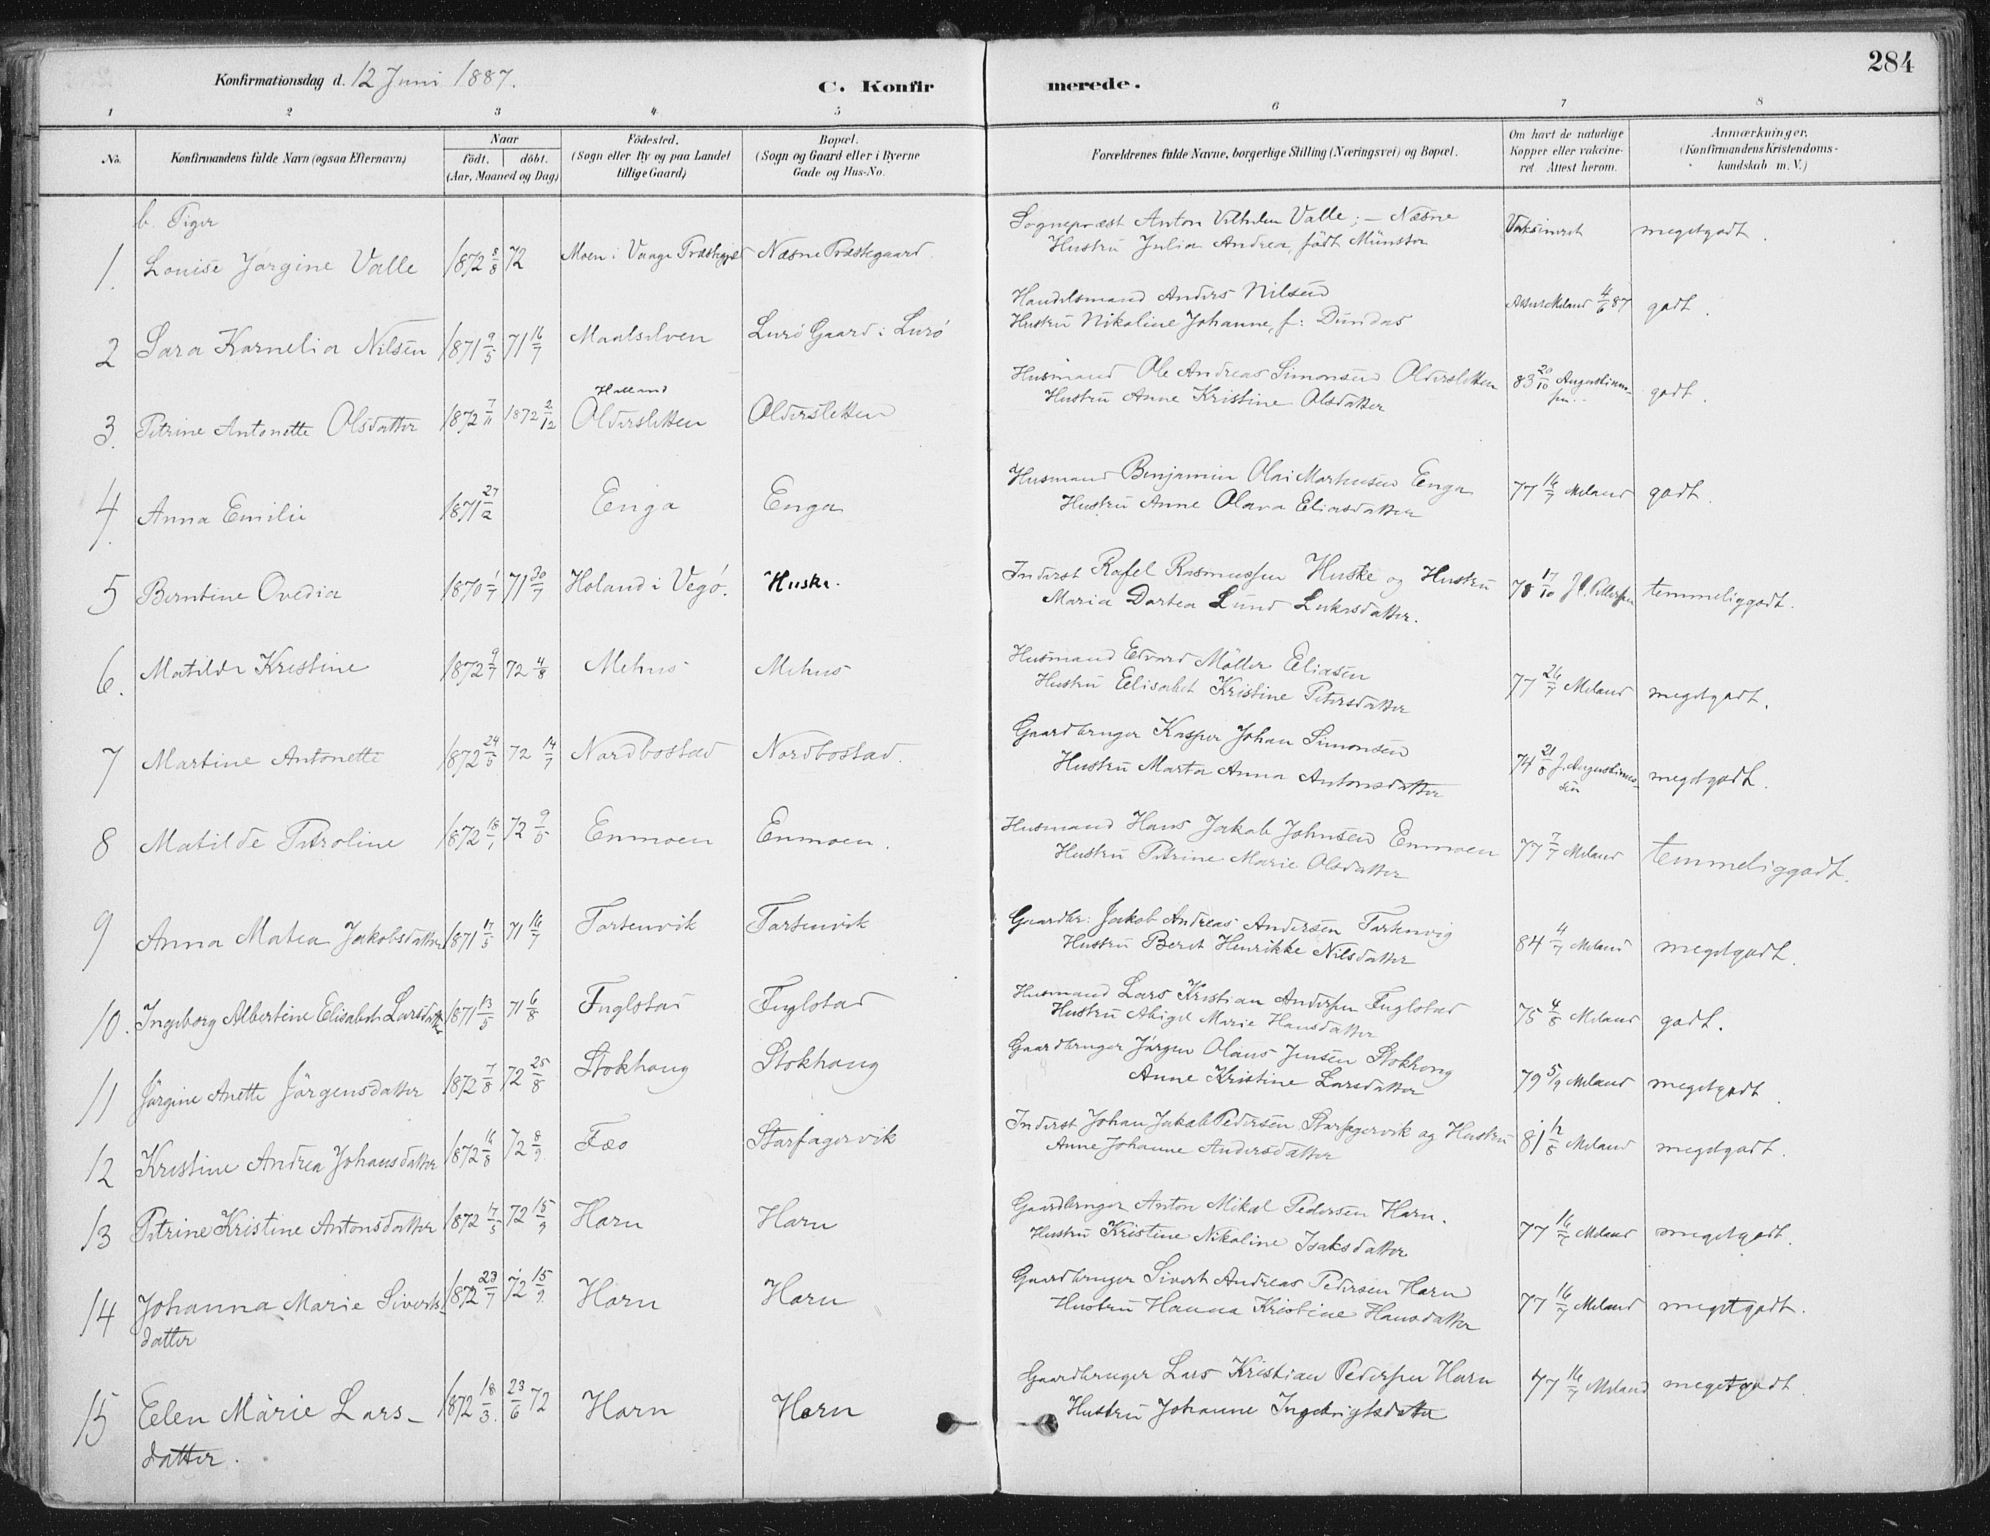 284
Konfirmationsdag d. 12 Juni 1887.
C. Konfirmerede.
1 2 3 4 5 6 7 8
No. Konfirmandens fulde Navn (ogsaa Efternavn) Naar födt. döbt. (Aar, Maaned og Dag) Födested. (Sogn eller By og paa Landet tillige Gaard) Bopæl. (Sogn og Gaard eller i Byerne Gade og Hus-No. Forældrenes fulde Navne, borgerlige Stilling (Næringsvei) og Bopæl. Om havt de naturlige Kopper eller vakcineret Attest herom. Anmærkninger, (Konfirmandens Kristendomskundskab m. V.)
b. Piger
1. Louise Jörgine Valle 1872 5/8 72 Moen i Vaage Næsne Præstegaard Sogneprest Anton Vilhelm Valle; – Næsne
Hustru Julia Andrea, födt Münster Vaksineret megetgodt.
2 Sara Kornelia Nilsen 1871 9/5 71 16/7 Maalselven Lurö Gaard i Lurö Handelsmand Anders Nilsen
Hustru Nikoline Johanne, f: Dundas Attest Meland 4/6 87 godt.
3. Petrine Antonette Olsdatter 1872 7/11 1872 2/12 Halland Oldersletten Oldersletten Husmand Ole Andreas Simonsen Oldersletten
Hustru Anne Kristine Olsdatter 83 20/10 godt.
4. Anna Emilie 1871 27/2 Enga Enga Husmand Benjamin Olai Markusen Enga
Hustru Anne Olava Eliasdatter 77 16/7 Meland godt.
5 Berntine Ovedia 1870 1/7 71 30/7 Holand i Vegö. Huske. Inderst Rafel Rasmussen Huske og Hustru
Maria Dortea Lund Lukasdatter. 78 17/10 temmeliggodt.
6. Matilde Kristine 1872 9/7 72 4/8 Mehus Mehus Husmand Edvard Möller Eliasen
Hustru Elisabet Kristine Petersdatter 77 26/7 Meland megetgodt.
7 Martine Antonette 1872 24/5 72 14/7 Nordbostad Nordbostad. Gaardbruger Kasper Johan Simonsen
Hustru Marta Anna Antonsdatter 74 21/8 J. Augustinussen megetgodt.
8 Matilde Petroline 1872 18/1 72 9/5 Enmoen Enmoen. Husmand Hans Jakob Johnsen Enmoen
Hustru Petrine Marie Olsdatter 77 7/7 Meland temmeliggodt.
9 Anna Matea Jakobsdatter 1871 17/5 71 16/7 Tortenvik Tortenvik Gaardbr: Jakob Andreas Andersen Tortenvig
Hustru Beret Henrikke Nilsdatter 84 4/7 Meland megetgodt.
10. Ingeborg Albertine Elisabeth Larsdatter 1871 13/5 71 6/8 Fuglstad Fuglstad Husmand Lars Kristian Andersen Fuglstad
Hustru Abigel Marie Hansdatter 75 4/8 Meland godt.
11 Jörgine Anette Jörgensdatter 1872 7/8 72 25/8 Stokhaug Stokhaug Gaardbruger Jörgen Olaus Jensen Stokhong
Anne Kristine Larsdatter 79 5/9 Meland megetgodt.
12 Kristine Andrea Johansdatter 1872 16/8 72 8/9 Fæo Starfagervik Inderst Johan Jakob Pedersen Starfagervik og Hustru
Anne Johanne Andersdatter 81 Meland megetgodt.
13 Petrine Kristine Antonsdatter 1872 17/5 72 15/9 Horn Horn Gaardbruger Anton Mikal Pedersen Horn.
Hustru Kristine Nikoline Isaksdatter 77 16/7 Meland megetgodt.
14 Johanna Marie Siverts-
datter 1872 23/7 72 15/9 Horn Horn Gaardbruger Sivert Andreas Pedersen Horn
Hustru Hanna Kristine Hansdatter 77 16/7 Meland megetgodt.
15 Elen Marie Lars-
datter. 1872 18/3. 23/6 72 Horn Horn Gaardbruger Lars Kristian Pedersen Horn
Hustru Johanne Ingebrigtsdatter 77 16/7 Meland megetgodt.